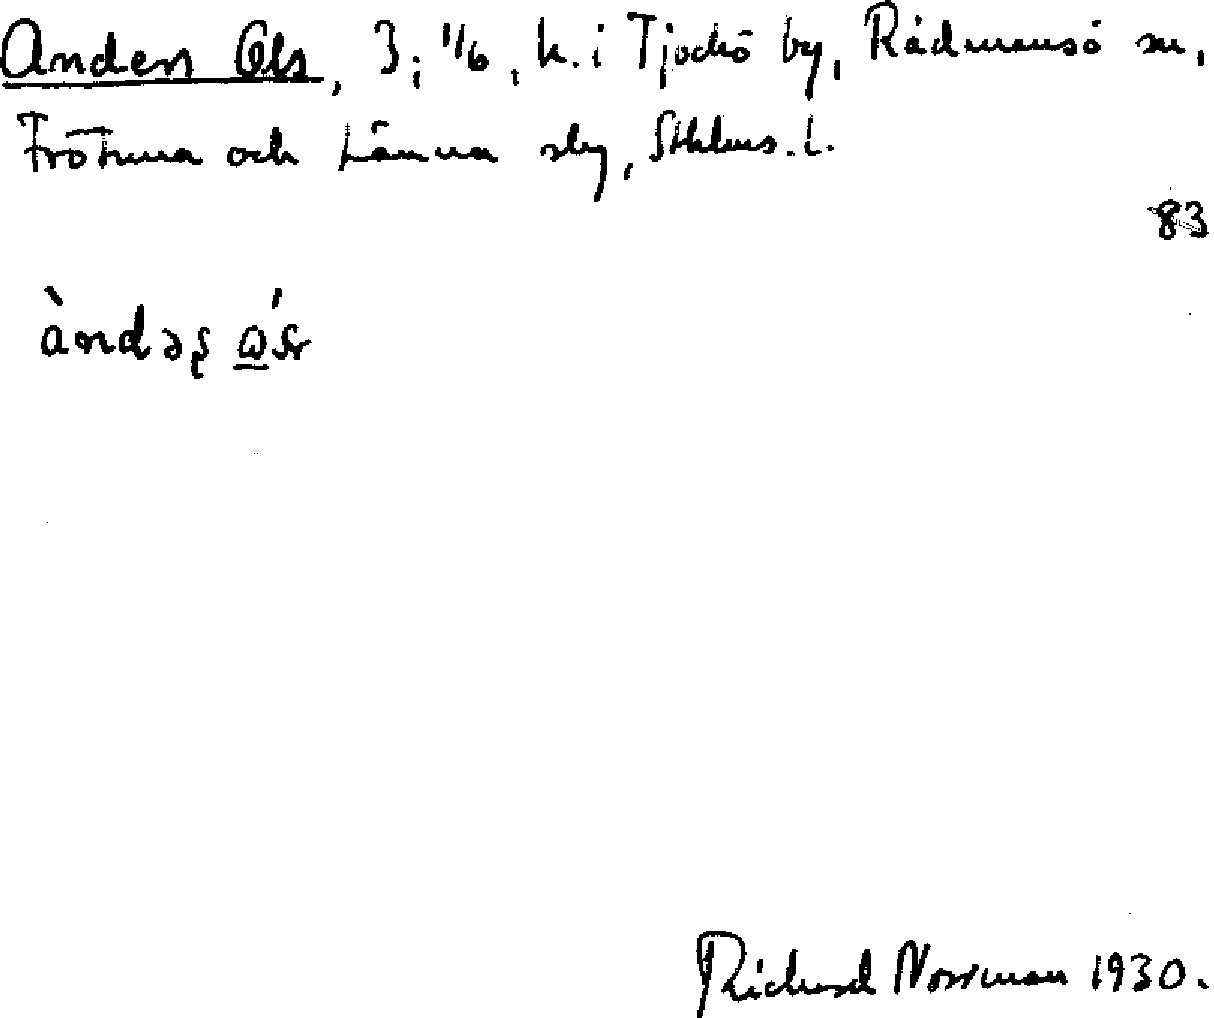 Anders Ols, 3; 1/6, h. i Tjockö by, Rådmansö sn,
Frötuna och Länna slg, Sthlms. L.
83
àndəş
Richard Norrman 1930.